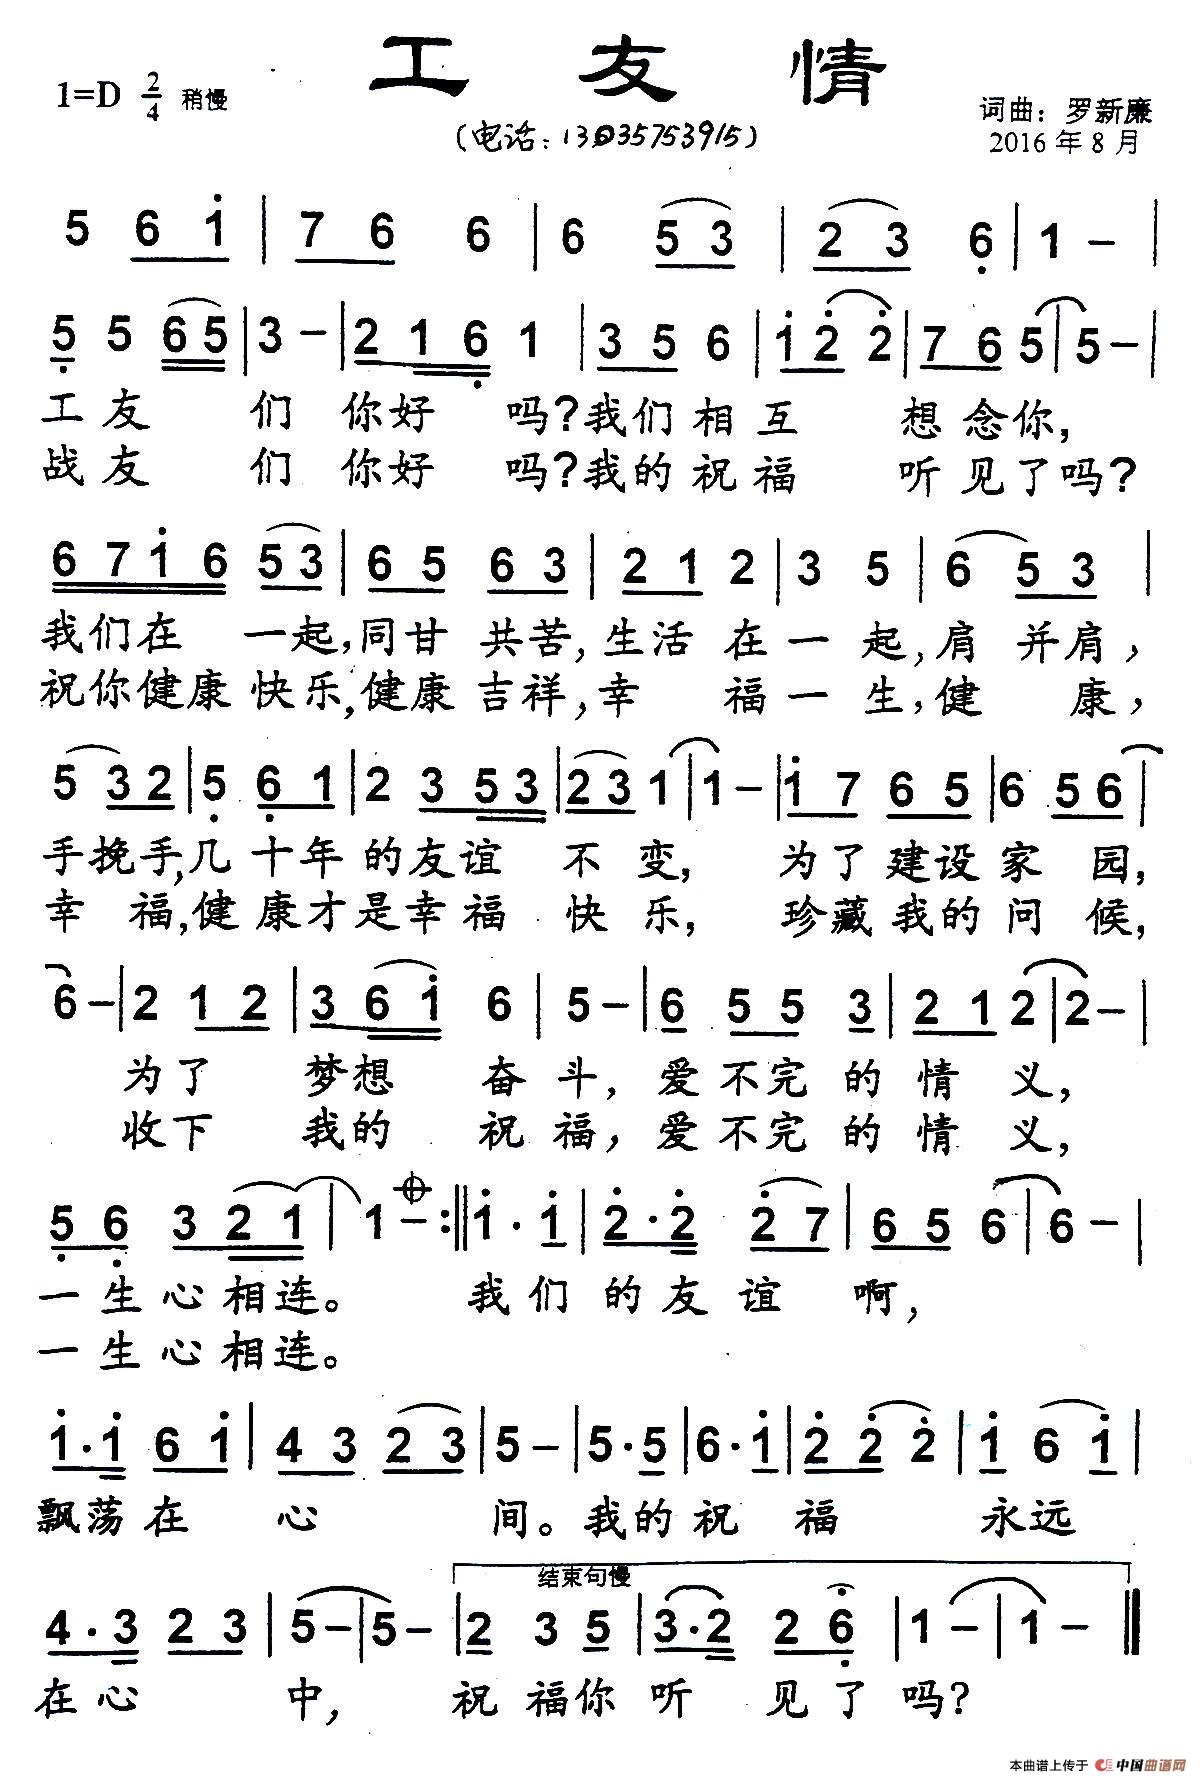 工友情
1=D 2/4 稍慢
词曲：罗新廉
(电话：13035753915)
2016年8月
5 6 1̇ | 7 6 6 | 6 5 3 | 2 3 6̣ | 1 – |
5̣ 5 6 5 | 3 – | 2 1 6̣ 1 | 3 5 6 | 1̇ 2̇ 2̇ | 7 6 5 | 5 – |
工友 们 你好 吗？我们相互 想念你，
战友 们 你好 吗？我的祝福 听见了吗？
6 7 1̇ 6 5 3 | 6 5 6 3 | 2 1 2 | 3 5 | 6 5 3 |
我们在 一起，同甘 共苦，生活在一起，肩 并肩，
祝你健康快乐，健康吉祥，幸 福一生，健 康，
5 3 2 | 5̣ 6̣ 1 | 2 3 5 3 | 2 3 1 | 1 – | 1̇ 7 6 5 | 6 5 6 |
手挽手，几十年的友谊 不变， 为了建设家 园，
幸 福，健康才是幸福 快乐， 珍藏我的问 候，
6 – | 2 1 2 | 3 6 1̇ 6 | 5 – | 6 5 5 3 | 2 1 2 | 2 – |
为了 梦想 奋斗，爱不完的情义，
收下 我的 祝福，爱不完的情义，
5̣ 6̣ 3 2 1 | 1 – :‖ 1̇ · 1̇ | 2̇ · 2̇ 2̇ 7 | 6 5 6 | 6 – |
一生心相连。 我们的友谊 啊，
一生心相连。
1̇ · 1̇ 6 1̇ | 4 3 2 3 | 5 – | 5 · 5 | 6 · 1̇ | 2̇ 2̇ 2̇ | 1̇ 6 1̇ |
飘荡在 心 间。我的祝福 永远
结束句慢
4 · 3 2 3 | 5 – | 5 – | 2 3 5 | 3 · 2 2 6̣ | 1 – | 1 – ‖
在心 中， 祝福你听 见了吗？
本曲谱上传于 中国曲谱网